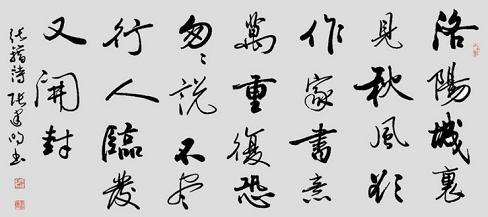 洛陽城裏
見秋風欲
作家書意
萬重復恐
匆〻說不盡
行人臨發
又開封
張籍詩 張 書